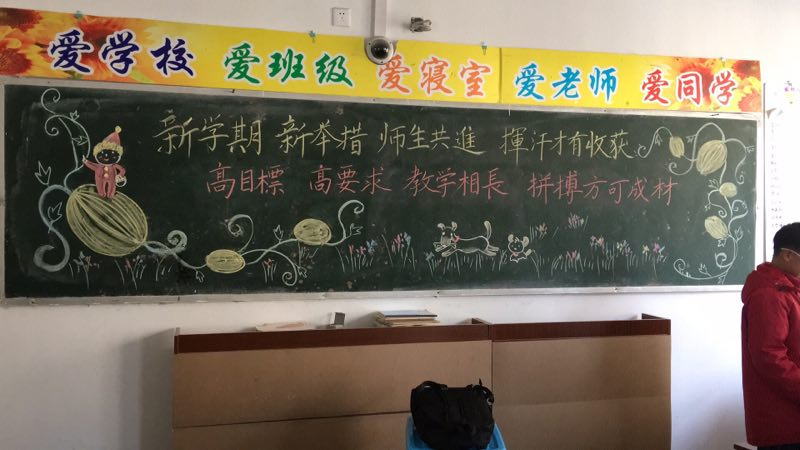 爱学校 爱班级 爱寝室 爱老师 爱同学
新学期 新举措 师生共進 揮汗才有收获
高目標 高要求 教学相長 拼搏方可成材